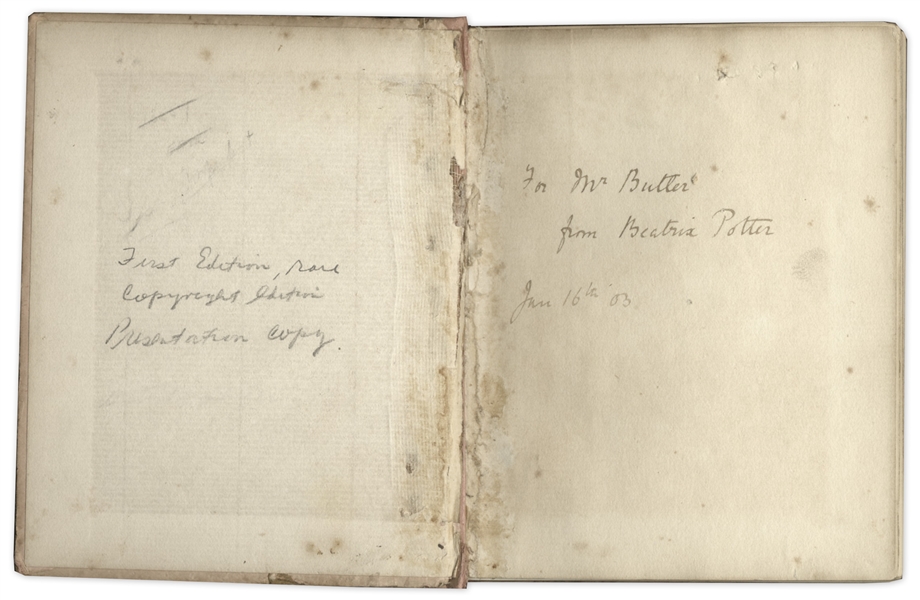 First Edition, rare
Copyright Edition
Presentation Copy.
For Mr Butler
from Beatrix Potter
Jan 16th 03